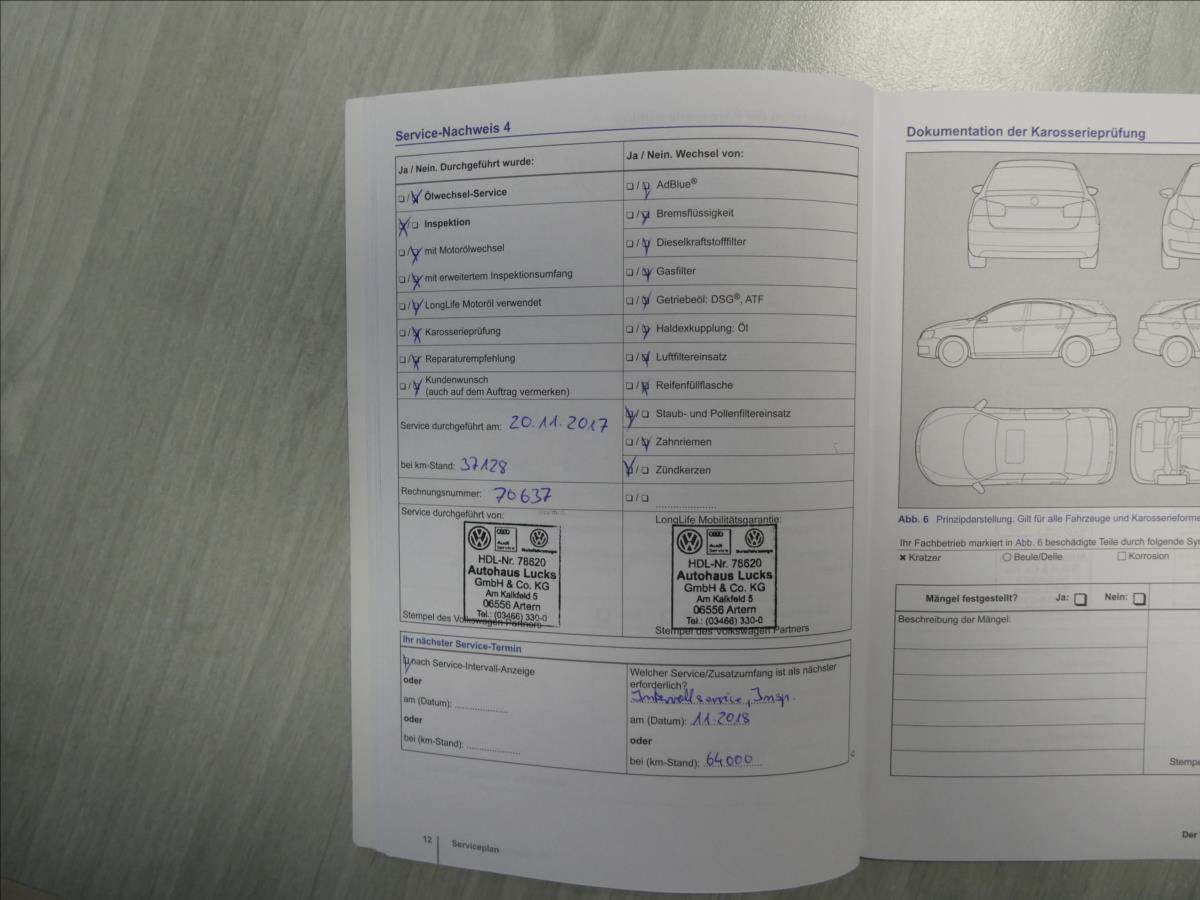 Service-Nachweis 4
Ja / Nein. Durchgeführt wurde:
❑ / ❑ Ölwechsel-Service
❑ / ❑ Inspektion
❑ / ❑ mit Motorölwechsel
❑ / ❑ mit erweitertem Inspektionsumfang
❑ / ❑ LongLife Motoröl verwendet
❑ / ❑ Karosserieprüfung
❑ / ❑ Reparaturempfehlung
❑ / ❑ Kundenwunsch
(auch auf dem Auftrag vermerken)
Service durchgeführt am: 20.11.2017
bei km-Stand: 37128
Rechnungsnummer: 70637
Service durchgeführt von:
HDL-Nr. 78620
Autohaus Lucks
GmbH & Co. KG
Am Kalkfeld 5
06556 Artern
Tel.: (03466) 330-0
Stempel des Volkswagen Partners
Ja / Nein. Wechsel von:
❑ / ❑ AdBlue®
❑ / ❑ Bremsflüssigkeit
❑ / ❑ Dieselkraftstofffilter
❑ / ❑ Gasfilter
❑ / ❑ Getriebeöl: DSG®, ATF
❑ / ❑ Haldexkupplung: Öl
❑ / ❑ Luftfiltereinsatz
❑ / ❑ Reifenfüllflasche
❑ / ❑ Staub- und Pollenfiltereinsatz
❑ / ❑ Zahnriemen
❑ / ❑ Zündkerzen
❑ / ❑
LongLife Mobilitätsgarantie:
Audi
Service
HDL-Nr. 78620
Autohaus Lucks
GmbH & Co. KG
Am Kalkfeld 5
06556 Artern
Tel.: (03466) 330-0
Stempel des Volkswagen Partners
Ihr nächster Service-Termin
nach Service-Intervall-Anzeige
oder
am (Datum):
oder
bei (km-Stand):
Welcher Service/Zusatzumfang ist als nächster
erforderlich?
Intervallservice, Insp.
am (Datum): 11.2018
oder
bei (km-Stand): 64000
12 Serviceplan
Dokumentation der Karosserieprüfung
Abb. 6 Prinzipdarstellung. Gilt für alle Fahrzeuge und Karosserieforme
Ihr Fachbetrieb markiert in Abb. 6 beschädigte Teile durch folgende Sy
× Kratzer ○ Beule/Delle ☐ Korrosion
Mängel festgestellt? Ja: ❑ Nein: ❑
Beschreibung der Mängel:
Stempe
Der